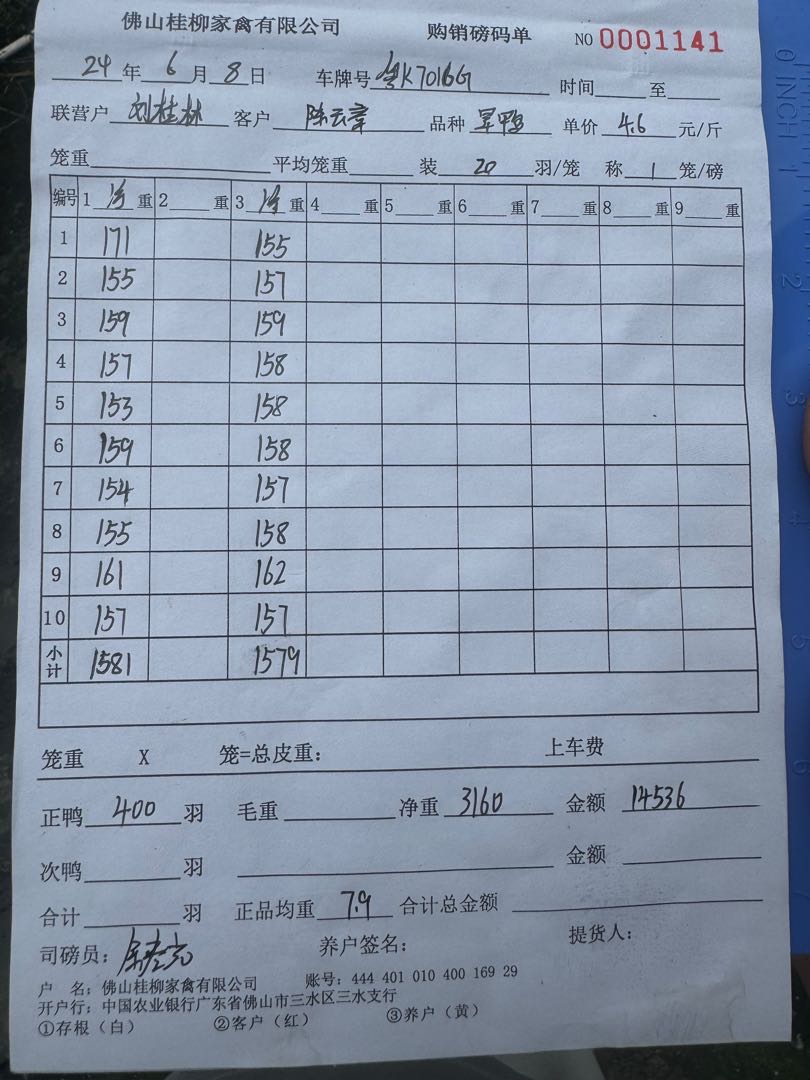 佛山桂柳家禽有限公司 购销磅码单 NO 0001141
24 年 6 月 8 日 车牌号 粤K7016G 时间 至
联营户 刘桂林 客户 陈云章 品种 旱鸭 单价 4.6 元/斤
笼重 平均笼重 装 20 羽/笼 称 1 笼/磅
编号 1 净 重 2 重 3 净 重 4 重 5 重 6 重 7 重 8 重 9 重
1 171 155
2 155 157
3 159 159
4 157 158
5 153 158
6 159 158
7 154 157
8 155 158
9 161 162
10 157 157
小计 1581 1579
笼重 X 笼=总皮重: 上车费
正鸭 400 羽 毛重 净重 3160 金额 14536
次鸭 羽 金额
合计 羽 正品均重 7.9 合计总金额
司磅员: 养户签名: 提货人:
户 名: 佛山桂柳家禽有限公司 账号: 444 401 010 400 169 29
开户行: 中国农业银行广东省佛山市三水区三水支行
①存根（白） ②客户（红） ③养户（黄）
0 INCH 1
2
3
4
5
6